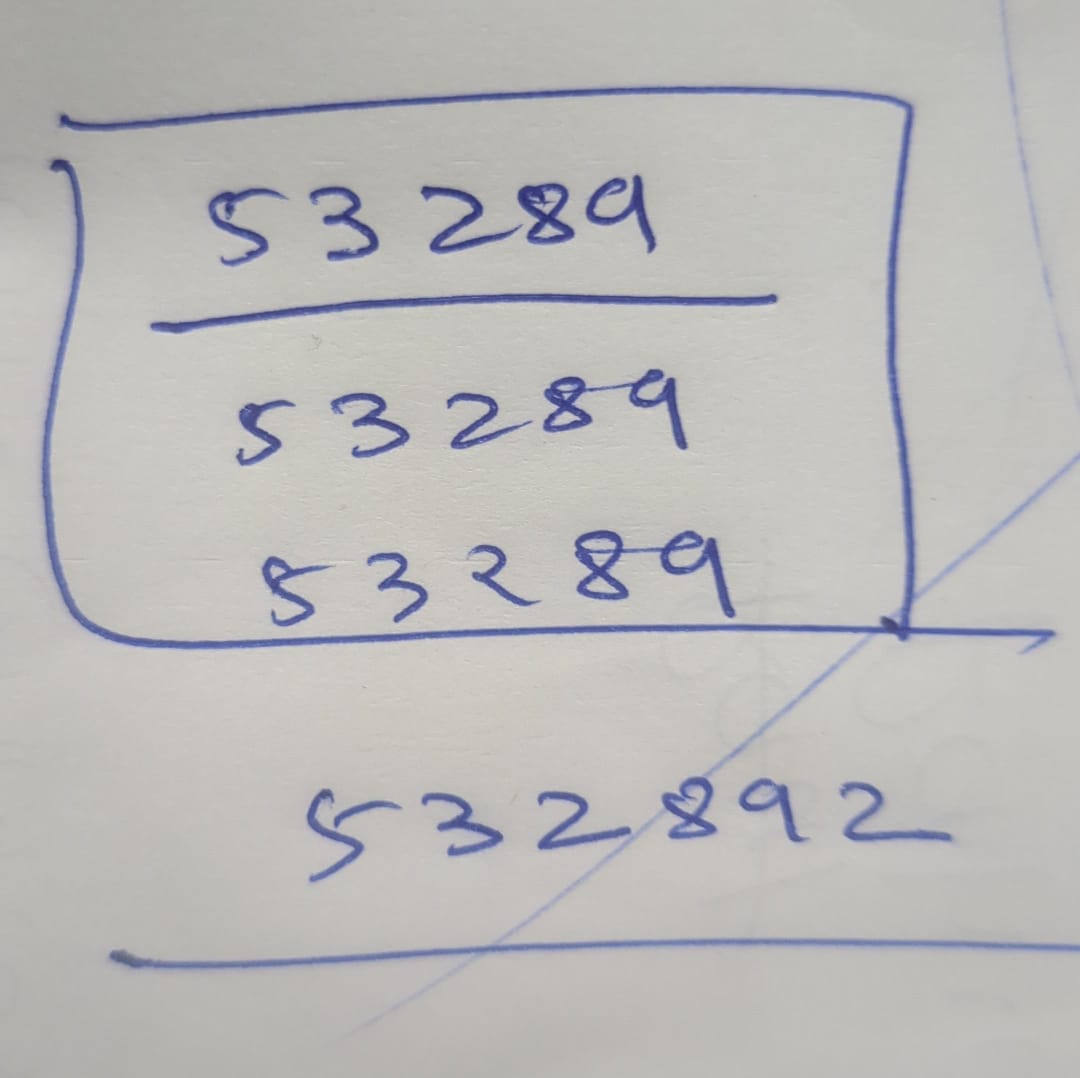 53289
53289
53289
532892